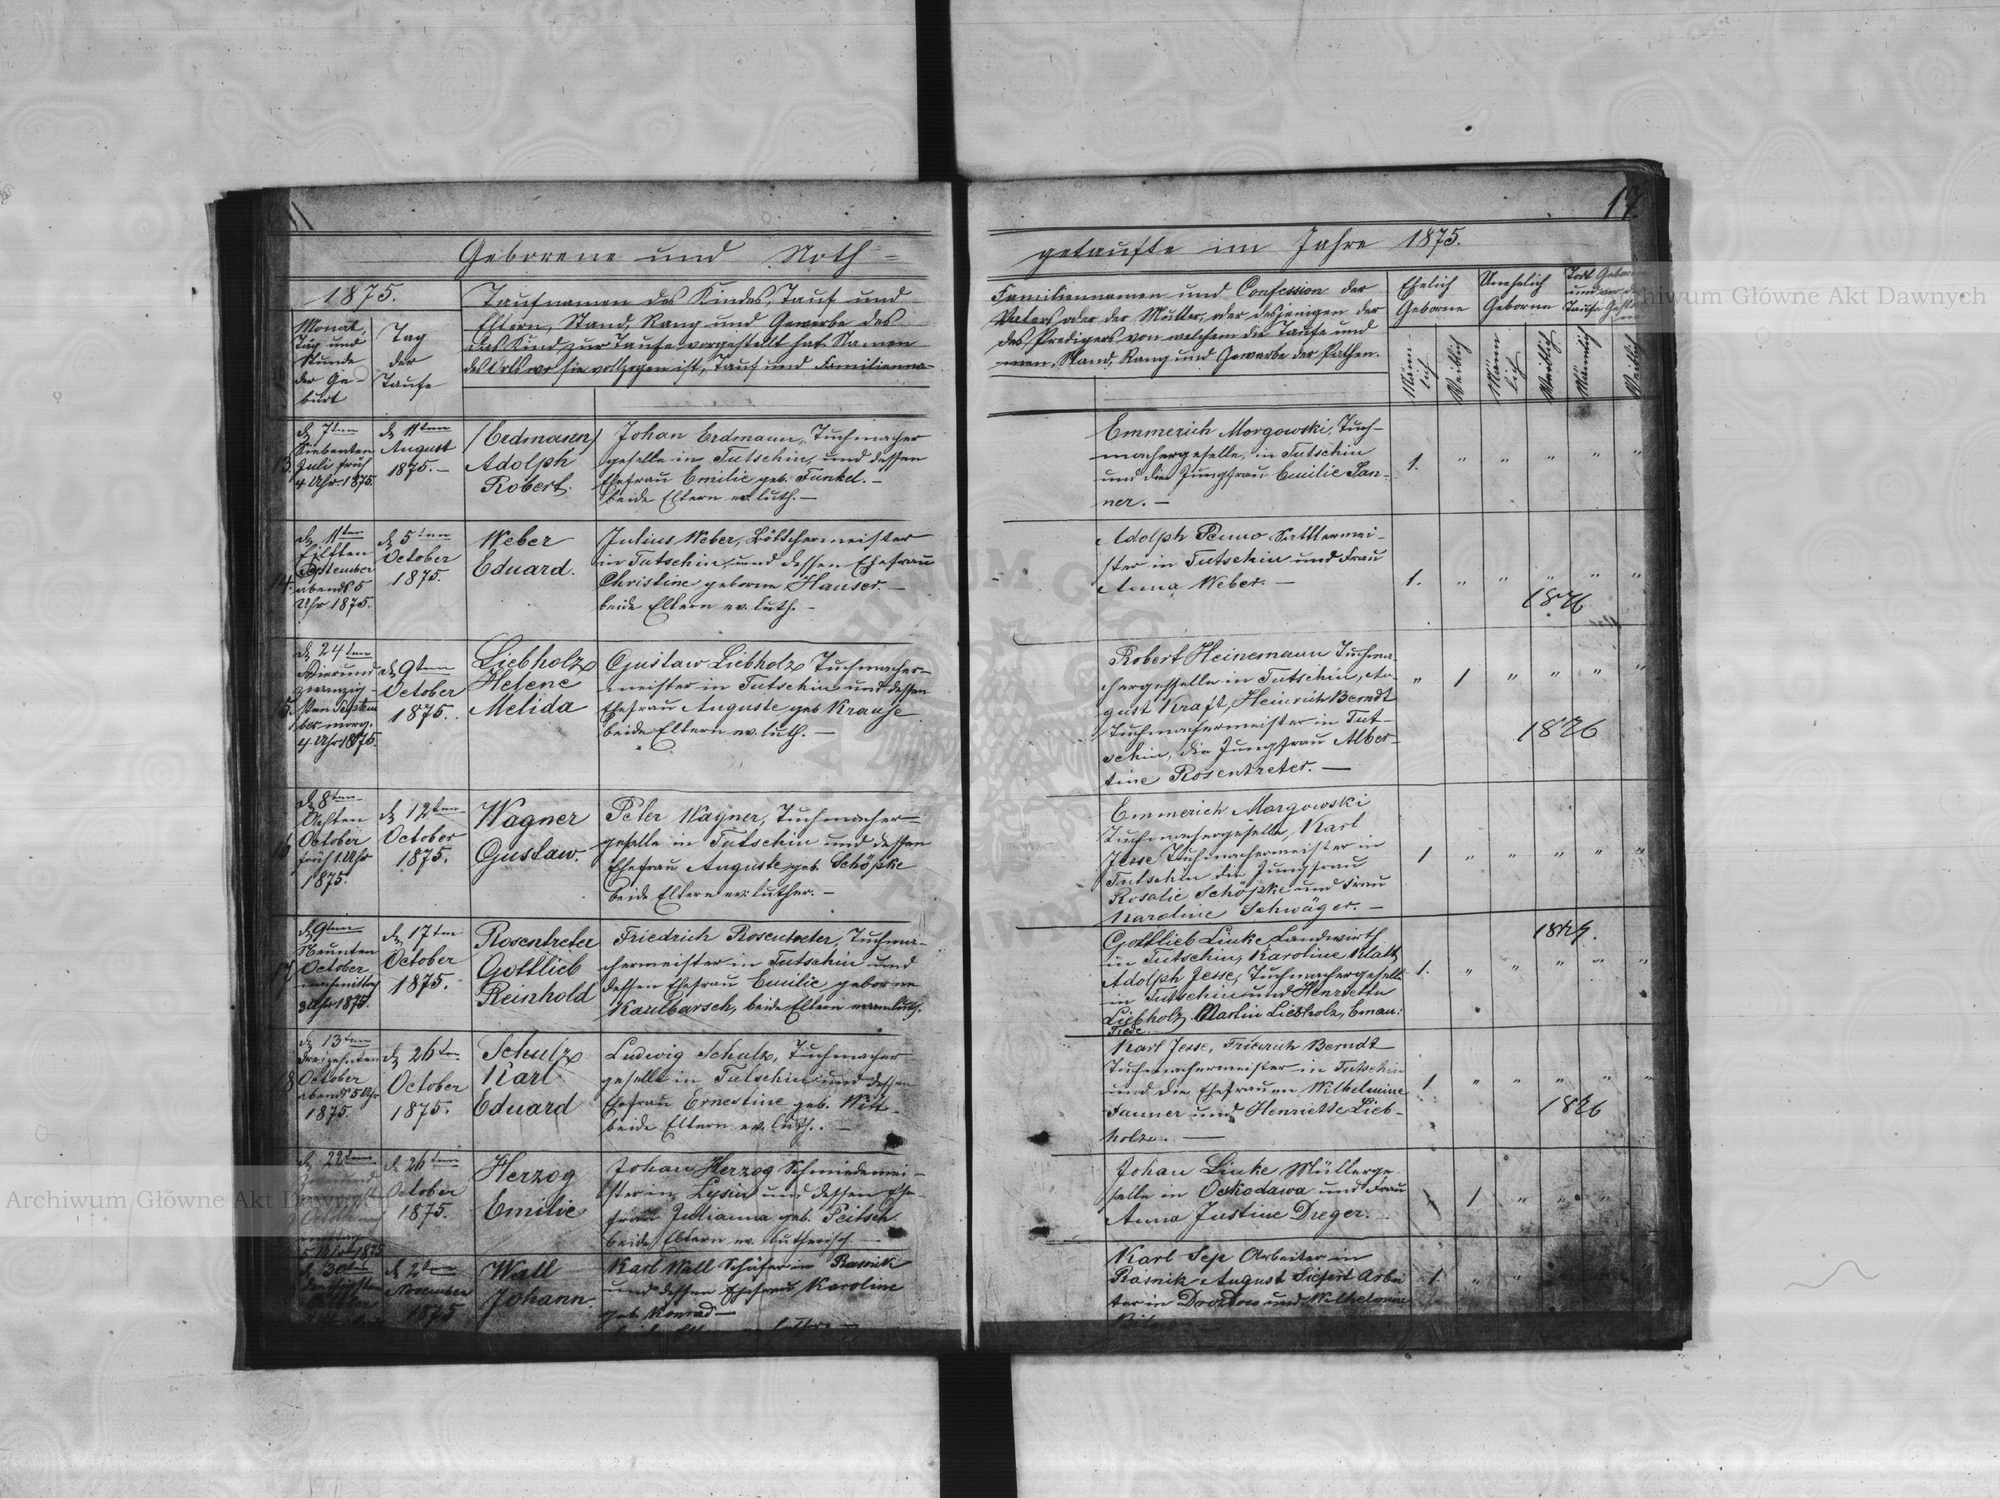 17.
Geborene und Noth=
getaufte im Jahre 1875.
1875.
Monat,
Tag und
Stunde
der Ge-
burt
Tag
der
Taufe
Taufnamen des Kindes, Tauf und
Eltern, Stand, Rang und Gewerbe des
das Kind zur Taufe vorgestellt hat Namen
des Orts wo sie vollzogen ist, Tauf und Familienna-
Familiennamen und Confession der
Vaters oder der Mutter, oder desjenigen der
des Predigers von welchem die Taufe und
men, Stand, Rang und Gewerbe der Pathen.
Ehelich
Geborne
Unehelich
Geborne
Todt Gebor
und vor der
Taufe Gest
Männ
lich
Weiblich
Männ
lich
Weiblich
Männlich
Weiblich
13.
d. 7ten
Siebenten
Juli früh
4 Uhr. 1875.
d. 11ten
August
1875. -
(Erdmann)
Adolph
Robert.
Johan Erdmann, Tuchmacher
geselle in Tutschin, und dessen
Ehefrau Emilie geb. Funkel. -
beide Eltern ev. luth. -
Emmerich Morgowski, Tuch-
machergeselle, in Tutschin
und die Jungfrau Emilie Jan-
ner. -
1. " " " " "
14.
d. 11ten
Eilften
September
abends 5
Uhr 1875.
d. 5ten
October
1875.
Weber
Eduard.
Julius Weber, Böttchermeister
in Tutschin, und dessen Ehefrau
Christine geborne Hauser. -
beide Eltern ev. luth. -
Adolph Penno Sattlermei-
ster in Tutschin und Frau
Anna Weber. -
1. " " " " "
1876
15.
d. 24ten
Vierund
zwanzig-
sten Septem
ber morg.
4 Uhr 1875.
d. 9ten
October
1875.
Liebholz
Helene
Melida
Gustaw Liebholz Tuchmacher-
meister in Tutschin und dessen
Ehefrau Auguste geb Krause
beide Eltern ev. luth. -
Robert Heinemann Tuchma-
chergeselle in Tutschin, Au-
gust Kraft, Heinrich Berndt
Tuchmachermeister in Tut-
schin, die Jungfrau Alber-
tine Rosentreter. -
" 1 " " " "
1876
16
d. 8ten
Achten
October
früh 1. Uhr
1875.
d. 12ten
October
1875.
Wagner
Gustaw.
Peter Wagner, Tuchmacher-
geselle in Tutschin und dessen
Ehefrau Auguste geb. Schöpke
beide Eltern ev: luther. -
Emmerich Morgowski
Tuchmachergeselle, Karl
Jesse Tuchmachermeister in
Tutschin die Jungfrau
Rosalie Schöpke und Frau
Karoline Schwäger. -
1 " " " " "
17
d. 9ten
Neunten
October
nachmittag
3 Uhr 1875.
d. 17ten
October
1875.
Rosentreter
Gottlieb
Reinhold
Friedrich Rosentreter, Tuchma-
chermeister in Tutschin und
dessen Ehefrau Emilie geborne
Kaulbarsch, beide Eltern evan. luth.
Gottlieb Linke Landwirth
in Tutschin, Karoline Klatt
Adolph Jesse, Tuchmachergesell
in Tutschin und Henriette
Liebholz Martin Liebholz, Eman:
Tiede.
1. " " " " "
18
d. 13ten
Dreizehnten
October
abends 5 Uhr
1875.
d. 26ten
October
1875.
Schulz
Karl
Eduard
Ludwig Schulz, Tuchmacher
geselle in Tutschin und dessen
Ehefrau Ernestine geb. Witt-
beide Eltern ev. luth. -
Karl Jesse, Friedrich Berndt
Tuchmachermeister in Tutschin
und die Ehefrauen Wilhelmine
Janner und Henriette Lieb-
holz. -
1 " " " " "
1876
d. 22ten
October
5 Uhr 1875
d. 26ten
October
1875.
Herzog
Emilie
Johan Herzog Schmiedemei-
ster in Lysin und dessen Ehe-
frau Julianna geb. Peitsch.
beide Eltern ev. lutherisch. -
Johan Linke Müllerge-
selle in Ockodawa und Frau
Anna Justine Dreger.
" 1 " " "
d. 30ten
dreizigsten
d. 2ten
November
1875
Wall
Johann.
Karl Wall Schäfer in Rasnik
und dessen Ehefrau Karoline
geb. Konrad -
Karl Sep Arbeiter in
Rasnik August Siefert Arbei
ter in Drozdow und Wilhelmine
1 " "
Archiwum Główne Akt Dawnych
Archiwum Główne Akt Dawnych